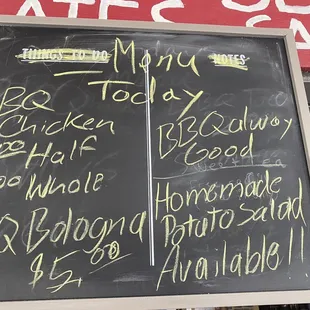 THINGS TO DO
NOTES
Menu
Today
BQ
Chicken
00 Half
00 Whole
Q Bologna
$5.00
BBQ alway
Good
Sweet tea
Homemade
Potuto Salad
Available!!